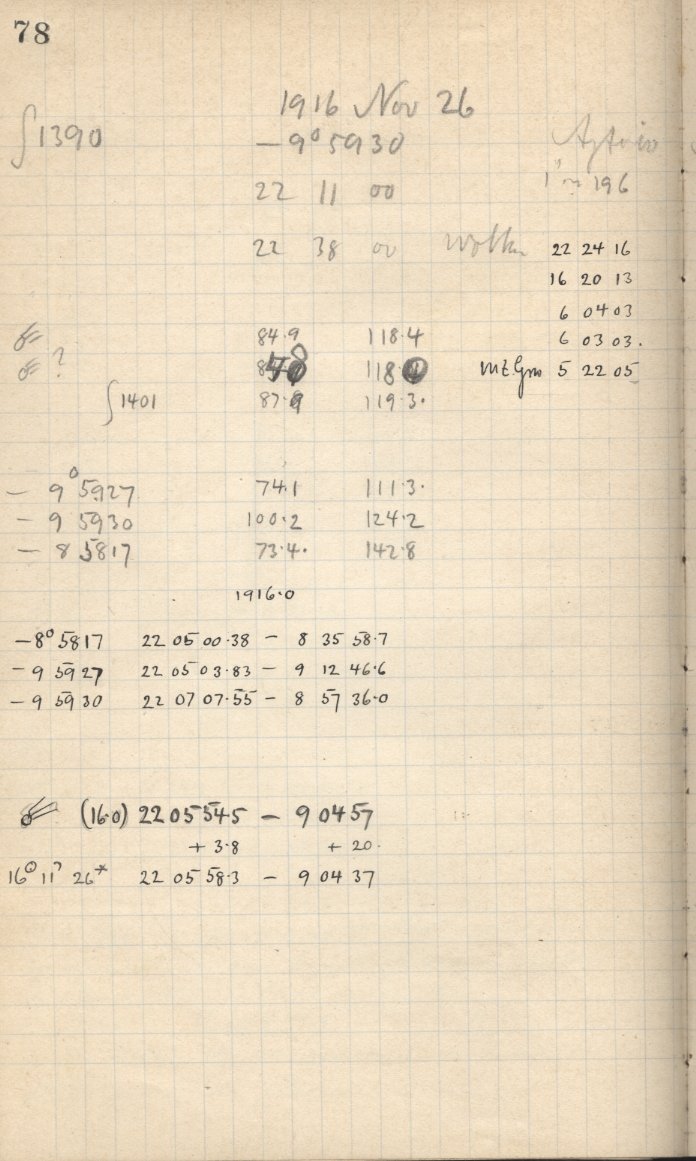 78
1916 Nov 26
∫1390 − 9° 5930
22 11 00
196
22 38 00 22 24 16
16 20 13
6 04 03
84.9 118.4 6 03 03.
? 118 5 22 05
∫1401 87.9 119.3.
− 9° 5927 74.1 111.3.
− 9 5930 100.2 124.2
− 8 5817 73.4. 142.8
1916.0
−8° 5817 22 05 00.38 − 8 35 58.7
− 9 5927 22 05 03.83 − 9 12 46.6
− 9 5930 22 07 07.55 − 8 57 36.0
(16.0) 22 05 54.5 − 9 04 57
+ 3.8 + 20.
22 05 58.3 − 9 04 37